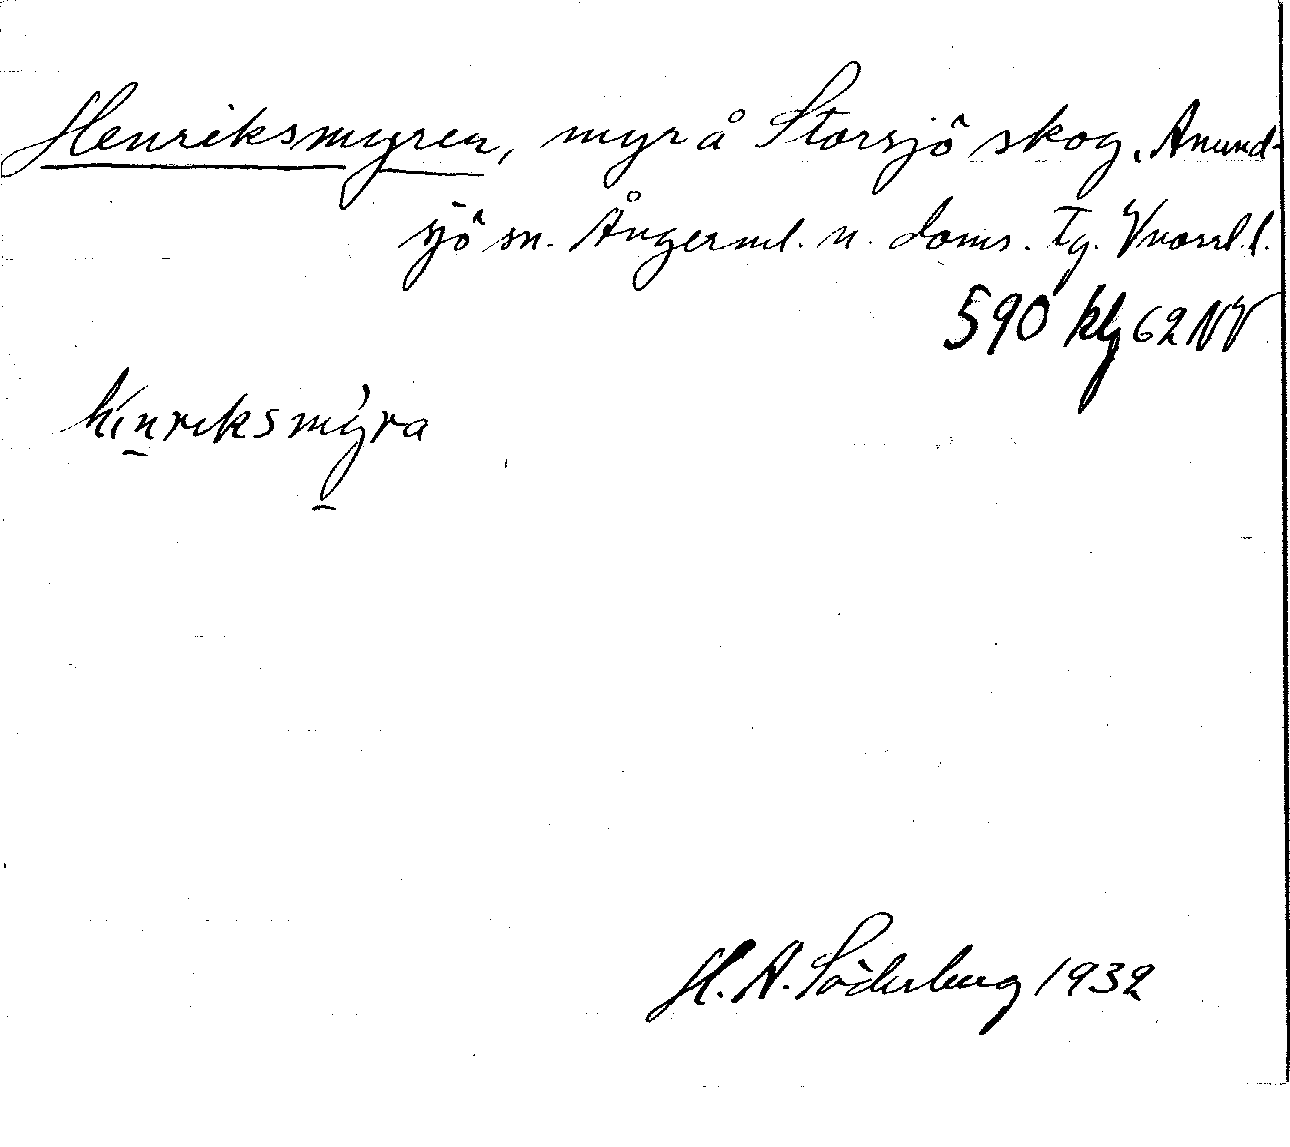 Henriksmyren, myr å Storsjö skog. Anund-
sjö sn. Ångerml. n. doms. Tg.
590 kbg 62 NV
hinriksmýra
H. A. Söderberg 1932